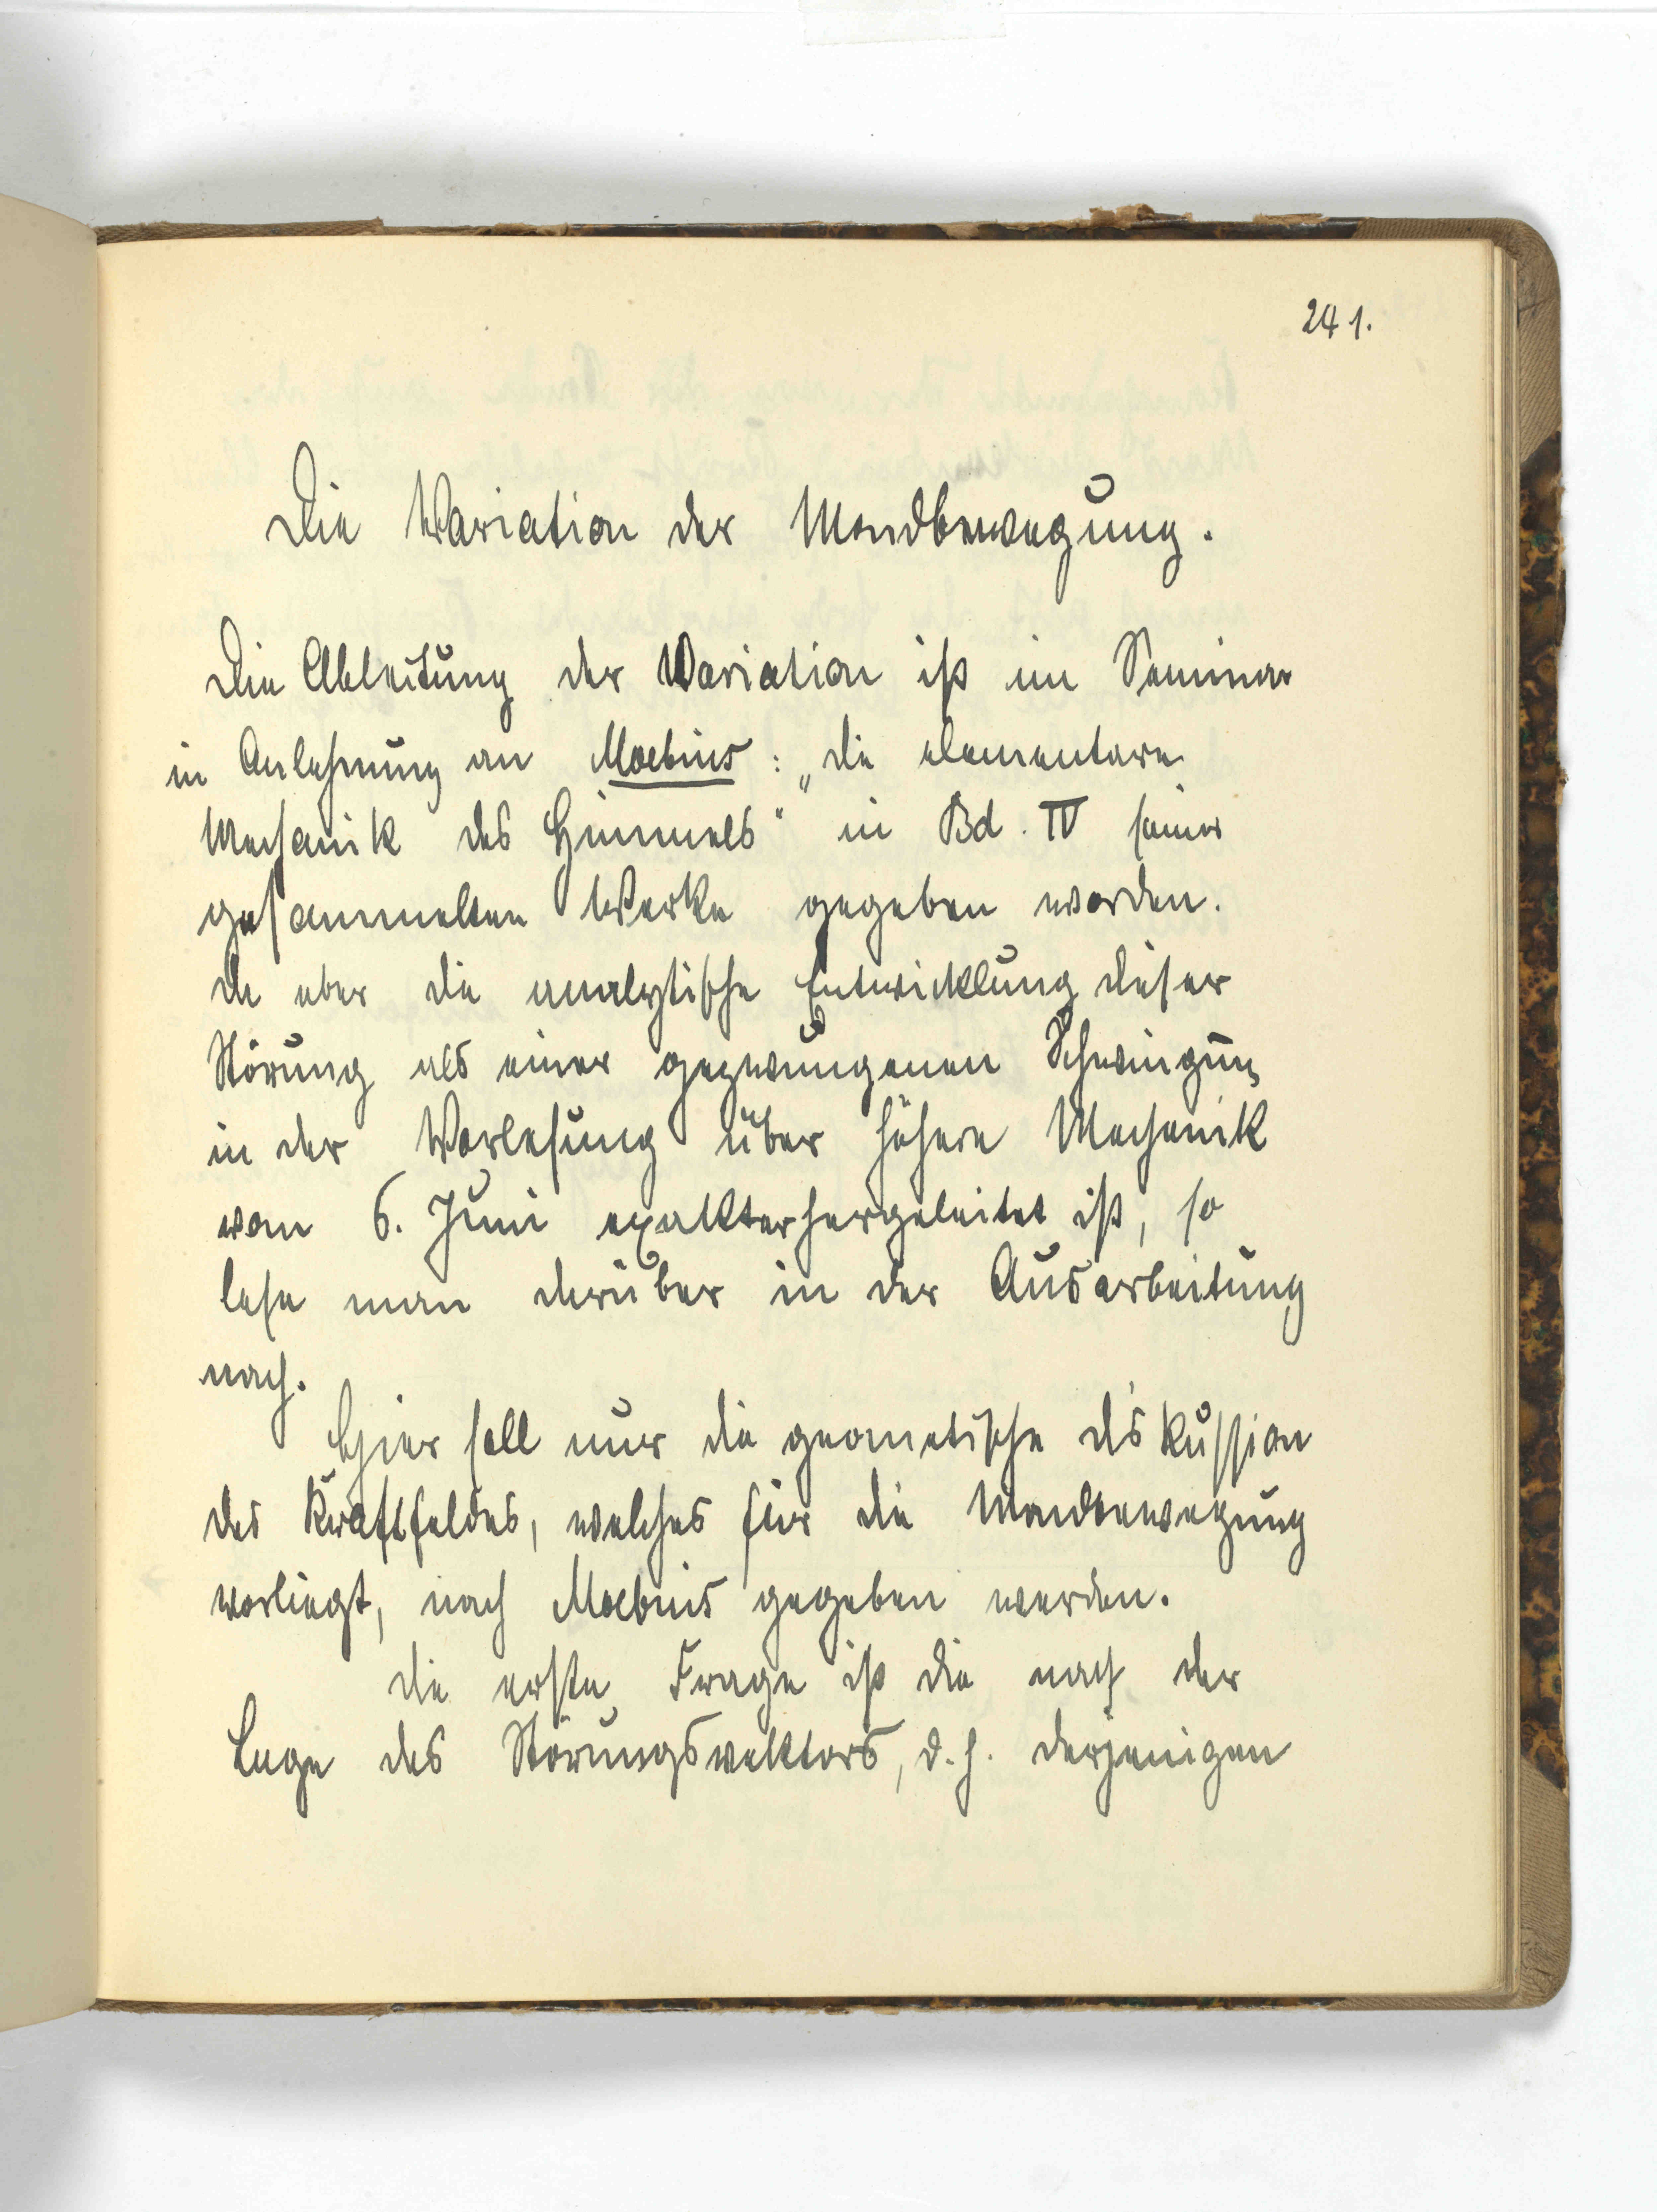 241.
Die Variation der Mondbewegung.
Die Ableitung der Variation ist im Seminar
in Anlehnung an Moebius: „die elementare
Mechanik des Himmels“ in Bd. IV seiner
gesammelten Werke gegeben worden.
Da aber die analytische Entwicklung dieser
Störung als einer gezwungenen Schwingung
in der Vorlesung über höhere Mechanik
vom 6. Juni exakter hergeleitet ist, so
lese man darüber in der Ausarbeitung
nach.
Hier soll nur die geometische Diskussion
des Kraftfeldes, welches für die Mondbewegung
vorliegt, nach Moebius gegeben werden.
Die erste Frage ist die nach der
Lage des Störungsvektors, d. h. derjenigen